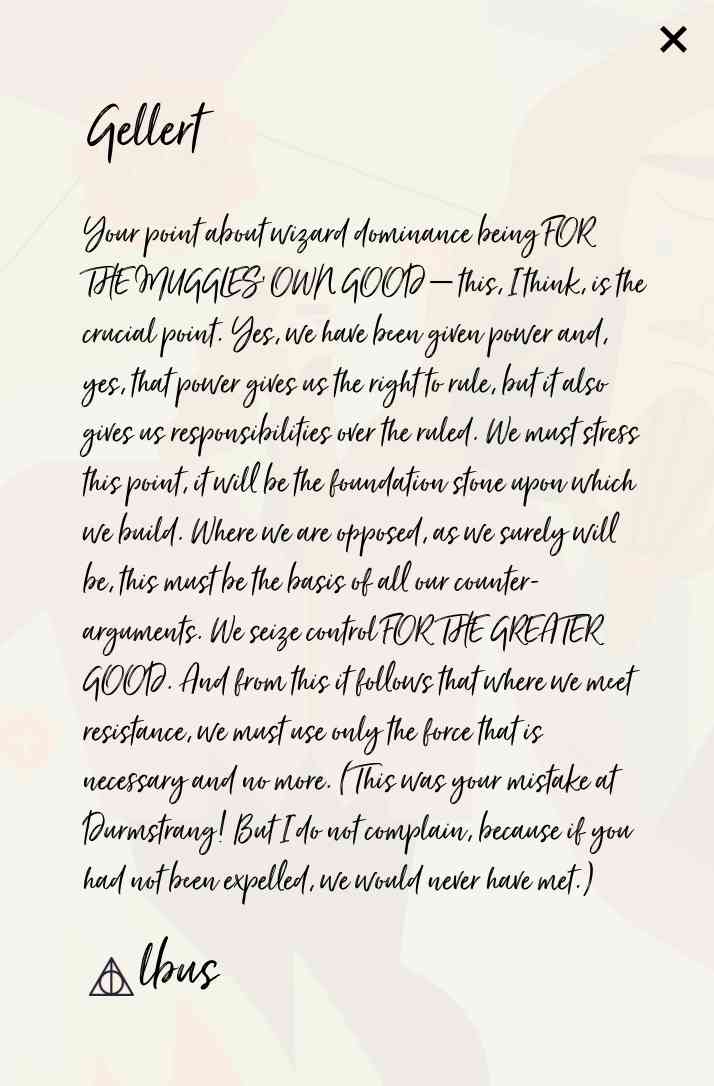 Gellert
Your point about wizard dominance being FOR
THE MUGGLES' OWN GOOD — this, I think, is the
crucial point. Yes, we have been given power and,
yes, that power gives us the right to rule, but it also
gives us responsibilities over the ruled. We must stress
this point, it will be the foundation stone upon which
we build. Where we are opposed, as we surely will
be, this must be the basis of all our counter-
arguments. We seize control FOR THE GREATER
GOOD. And from this it follows that where we meet
resistance, we must use only the force that is
necessary and no more. (This was your mistake at
Durmstrang! But I do not complain, because if you
had not been expelled, we would never have met.)
lbus